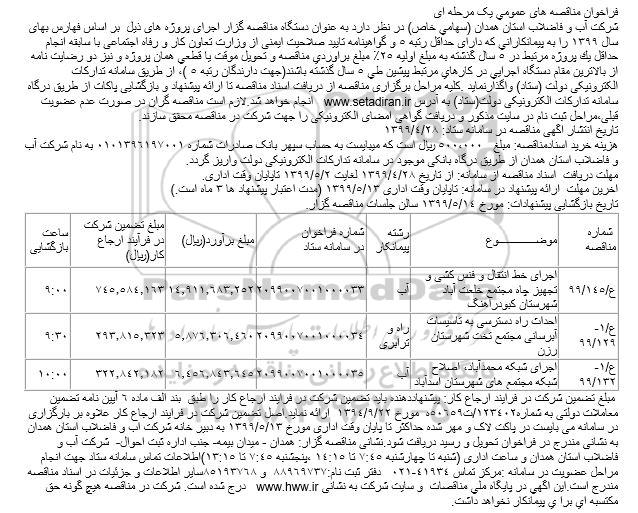 فراخوان مناقصه های عمومي يک مرحله ای
شرکت آب و فاضلاب استان همدان (سهامي خاص) در نظر دارد به عنوان دستگاه مناقصه گزار اجرای پروژه های ذيل بر اساس فهارس بهای
سال ۱۳۹۹ را به پيمانکاراني که دارای حداقل رتبه ۵ و گواهينامه تاييد صلاحيت ايمني از وزارت تعاون کار و رفاه اجتماعی با سابقه انجام
حداقل يك پروژه مرتبط در ۵ سال گذشته به مبلغ اوليه ۲۵٪ مبلغ برآوردي مناقصه و تحويل موقت يا قطعي همان پروژه و نيز دو رضايت نامه
از بالاترين مقام دستگاه اجرايي در کارهاي مرتبط پيشين طي ۵ سال گذشته باشند(جهت دارندگان رتبه ۵ )، از طريق سامانه تدارکات
الکترونيکی دولت (ستاد) واگذارنمايد .کليه مراحل برگزاری مناقصه از دريافت اسناد مناقصه تا ارائه پيشنهاد و بازگشايی پاکات از طريق درگاه
سامانه تدارکات الکترونيکی دولت(ستاد) به آدرس www.setadiran.ir انجام خواهد شد.لازم است مناقصه گران در صورت عدم عضويت
قبلی،مراحل ثبت نام در سايت مذکور و دريافت گواهی امضای الکترونيکی را جهت شرکت در مناقصه محقق سازند.
تاريخ انتشار آگهي مناقصه در سامانه ستاد: ۱۳۹۹/۴/۲۸
هزينه خريد اسنادمناقصه: مبلغ ۵۰۰،۰۰۰ ريال است که ميبايست به حساب سپهر بانک صادرات شماره ۰۱۰۱۳۹۶۱۹۷۰۰۱ به نام شرکت آب
و فاضلاب استان همدان از طريق درگاه بانکی موجود در سامانه تدارکات الکترونيکی دولت واريز گردد.
مهلت دريافت اسناد مناقصه از سامانه: از تاريخ ۱۳۹۹/۴/۲۸ لغايت ۱۳۹۹/۵/۲ تاپايان وقت اداری.
آخرين مهلت ارائه پيشنهاد در سامانه: تاپايان وقت اداری ۱۳۹۹/۵/۱۳ (مدت اعتبار پيشنهاد ها ۳ ماه است.)
تاريخ بازگشايی پيشنهادات: مورخ ۱۳۹۹/۵/۱۴ سالن جلسات مناقصه گزار.
شماره مناقصه موضـــــــوع رشته پيمانکار شماره فراخوان در سامانه ستاد مبلغ برآورد(ريال) مبلغ تضمين شرکت در فرآيند ارجاع کار(ريال) ساعت بازگشايی
ع/۹۹/۱۴۵ اجرای خط انتقال و فنس کشی و تجهيز چاه مجتمع خلعت آباد شهرستان کبودرآهنگ آب ۲۰۹۹۰۰۷۰۰۱۰۰۰۰۳۳ ۱۴,۹۱۱,۶۸۳,۲۵۲ ۷۴۵,۵۸۴,۱۶۳ ۹:۰۰
ع/۱-۹۹/۱۲۹ احداث راه دسترسی به تاسيسات آبرسانی مجتمع تخت شهرستان رزن راه و ترابری ۲۰۹۹۰۰۷۰۰۱۰۰۰۰۳۴ ۵,۸۷۶,۳۰۶,۴۶۰ ۲۹۳,۸۱۵,۳۲۳ ۹:۳۰
ع/۱-۹۹/۱۳۲ اجرای شبکه محمدآباد، اصلاح شبکه مجتمع های شهرستان اسدآباد آب ۲۰۹۹۰۰۷۰۰۱۰۰۰۰۳۵ ۶,۴۵۶,۸۴۳,۶۴۵ ۳۲۲,۸۴۲,۱۸۲ ۱۰:۰۰
مبلغ تضمين شرکت در فرايند ارجاع کار: پيشنهاددهنده بايد تضمين شرکت در فرايند ارجاع کار را طبق بند الف ماده ۶ آيين نامه تضمين
معاملات دولتی به شماره۱۲۳۴۰۲/ت۵۰۶۵۹ه مورخ ۱۳۹۴/۹/۲۲ ارائه نمايد.اصل تضمين شرکت در فرايند ارجاع کار علاوه بر بارگزاری
در سامانه می بايست در پاکت لاک و مهر شده حداکثر تا پايان وقت اداری مورخ ۱۳۹۹/۵/۱۳ به دبير خانه شرکت آب و فاضلاب استان همدان
به نشانی مندرج در فراخوان تحويل و رسيد دريافت شود.نشانی مناقصه گزار: همدان - ميدان بيمه- جنب اداره ثبت احوال- شرکت آب و
فاضلاب استان همدان و ساعت اداری (شنبه تا چهارشنبه ۷:۴۵ تا ۱۴:۱۵ ،پنجشنبه ۷:۴۵ تا ۱۳:۱۵)اطلاعات تماس سامانه ستاد جهت انجام
مراحل عضويت در سامانه :مرکز تماس ۴۱۹۳۴-۰۲۱ دفتر ثبت نام:۸۸۹۶۹۷۳۷ و ۸۵۱۹۳۷۶۸ساير اطلاعات و جزئيات در اسناد مناقصه
مندرج است.اين آگهي در پايگاه ملي مناقصات و سايت شرکت به نشانی www.hww.ir درج شده است. شرکت در مناقصه هيچ گونه حق
مکتسبه ای برا ي پيمانکار نخواهد داشت.